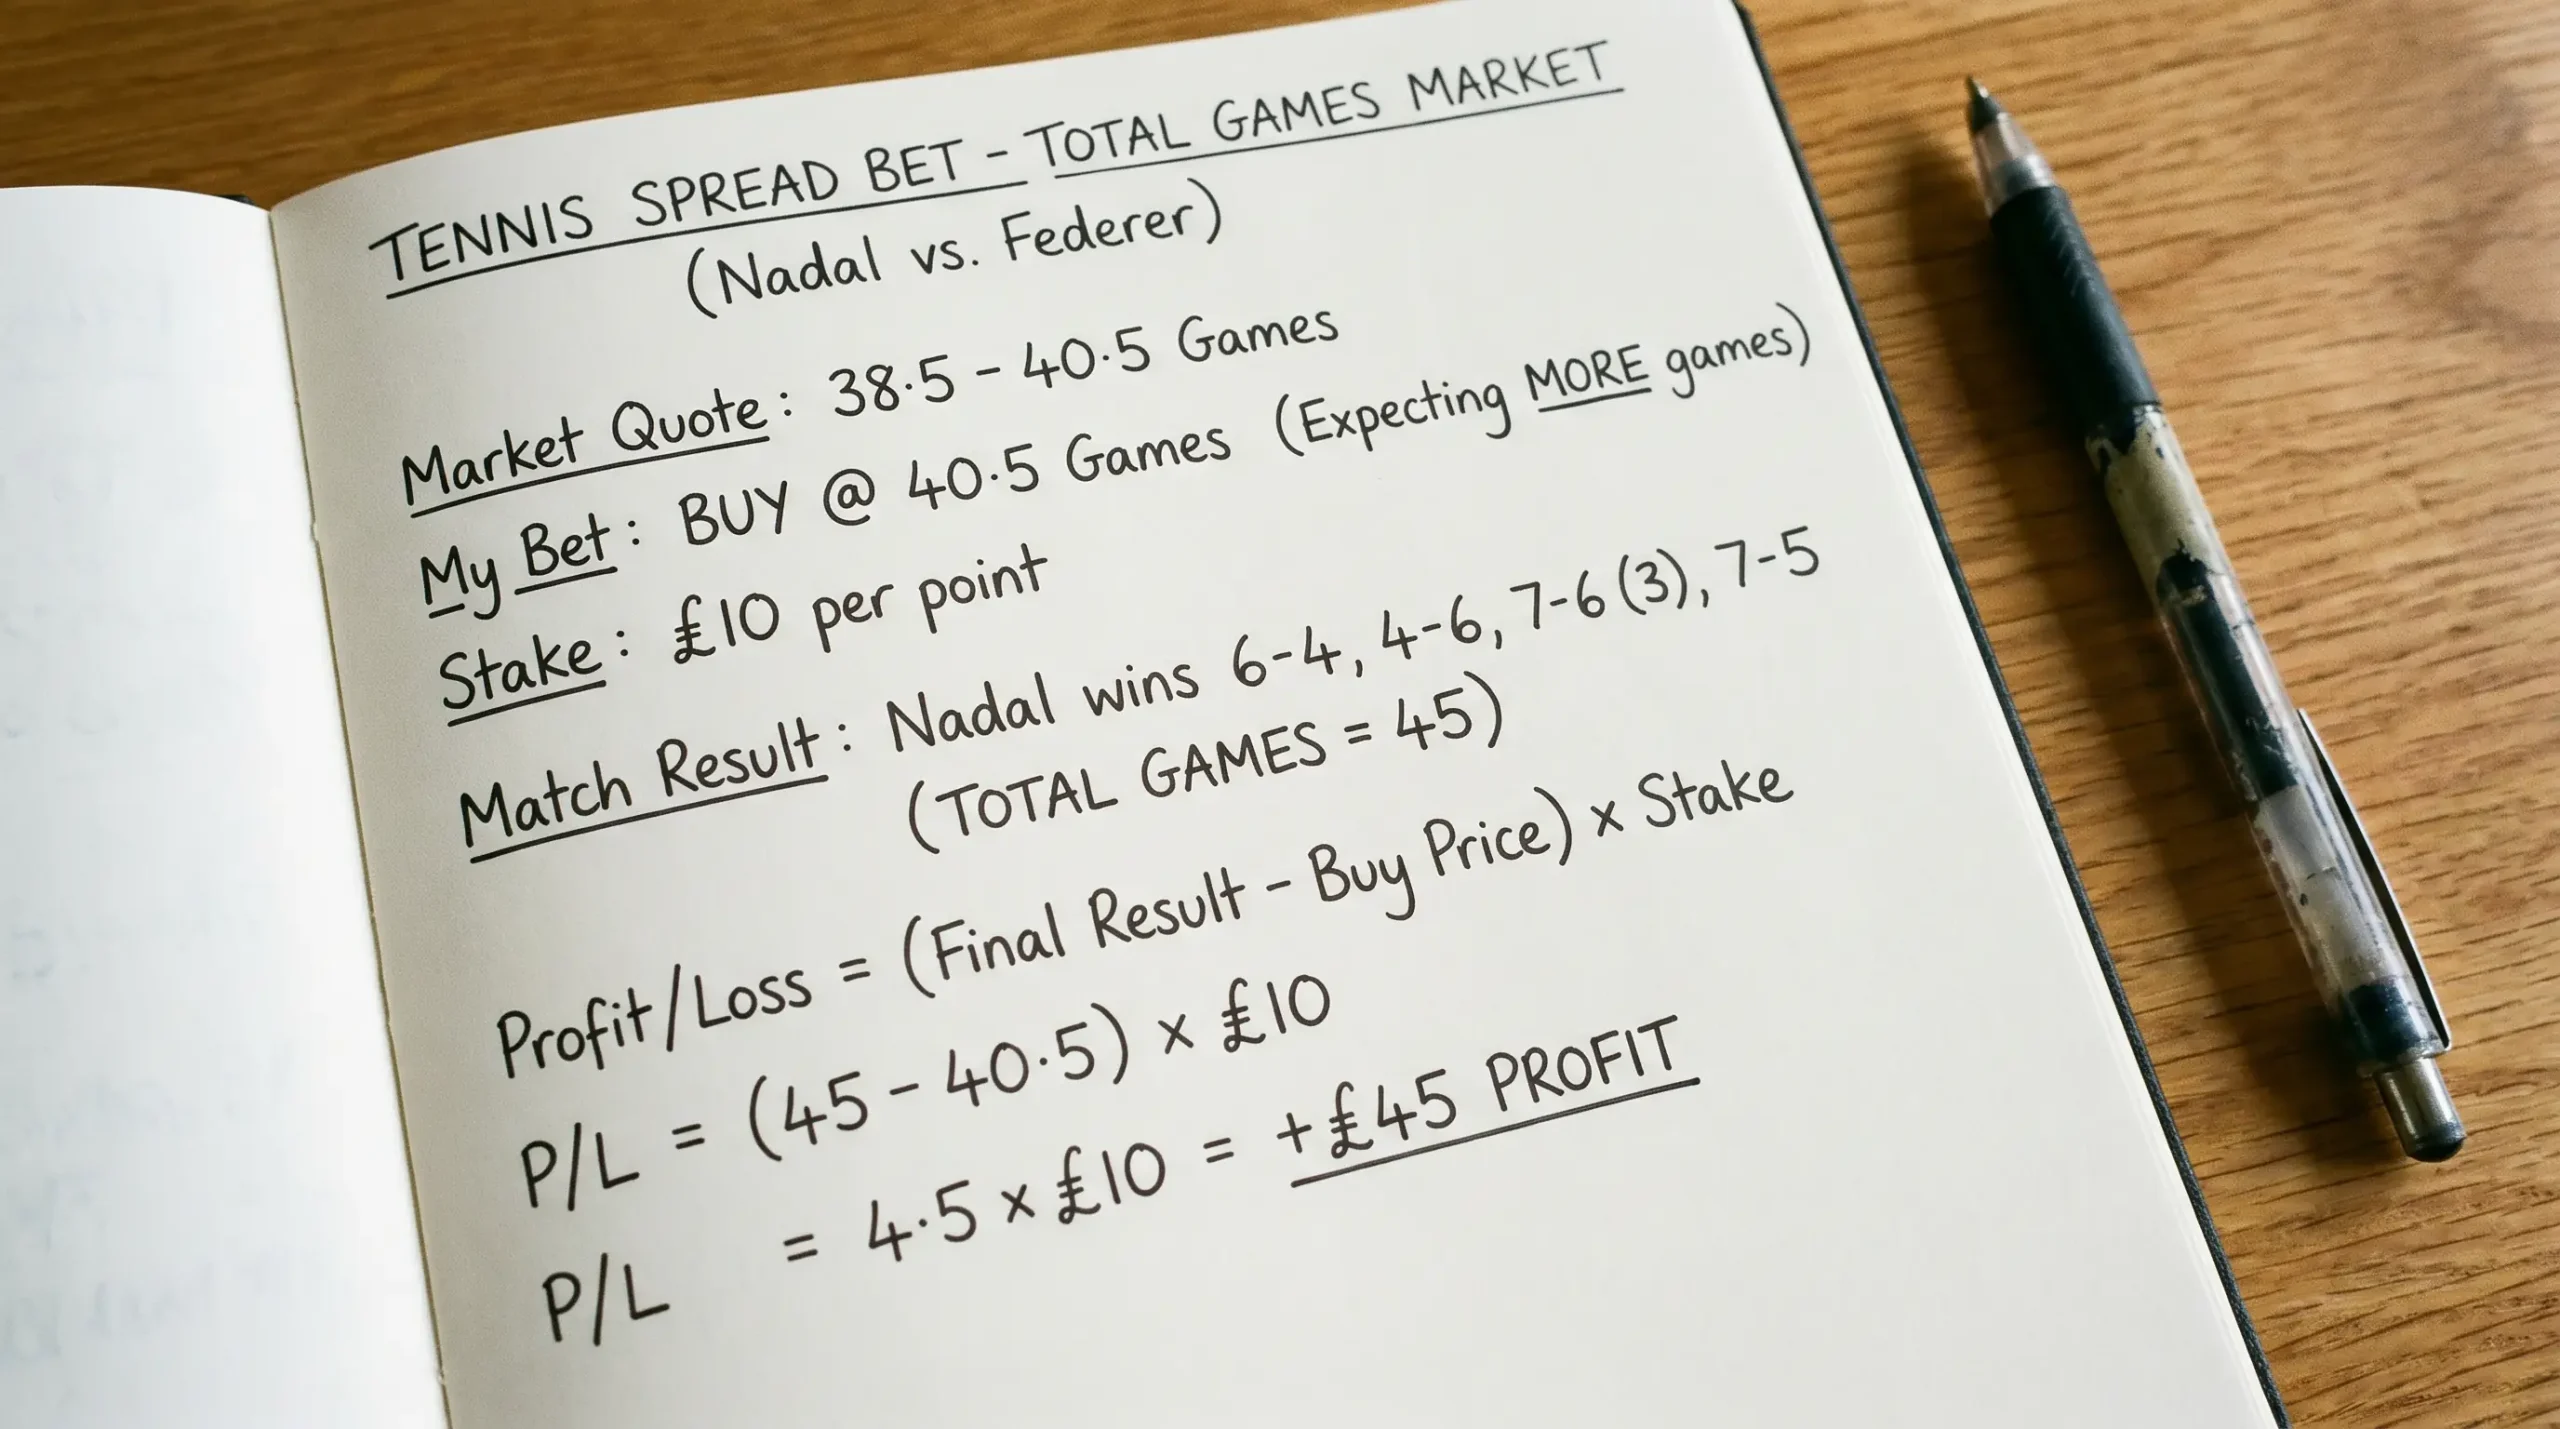 TENNIS SPREAD BET - TOTAL GAMES MARKET
(Nadal vs. Federer)
Market Quote: 38.5 - 40.5 Games
My Bet: BUY @ 40.5 Games (Expecting MORE games)
Stake: £10 per point
Match Result: Nadal wins 6-4, 4-6, 7-6 (3), 7-5
(TOTAL GAMES = 45)
Profit/Loss = (Final Result - Buy Price) × Stake
P/L = (45 - 40.5) × £10
P/L = 4.5 × £10 = +£45 PROFIT